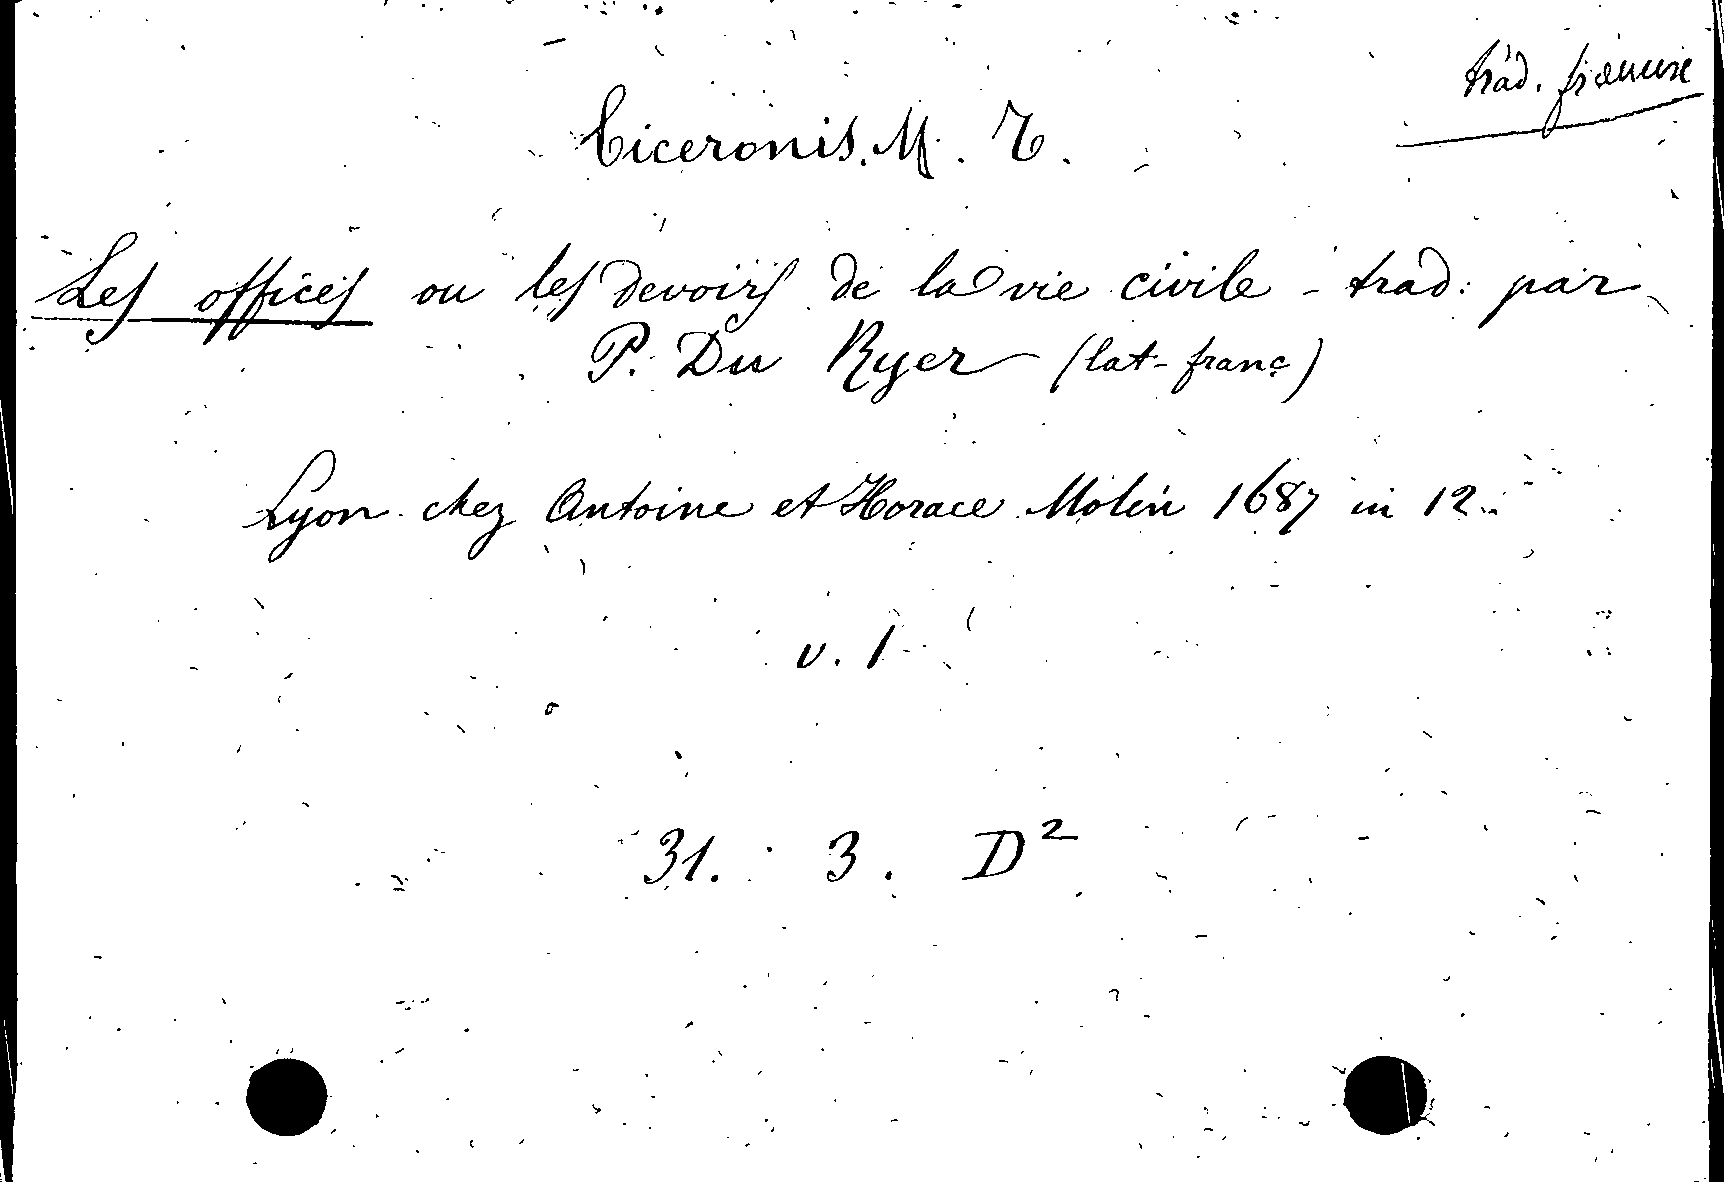 trad. française
Ciceronis. M. T.
Les offices ou les devoirs de la vie civile - trad. par
P. Du Ryer (lat-franç)
Lyon chez Antoine et Horace Molin 1687 in 12.
v. 1
31. 3. D²